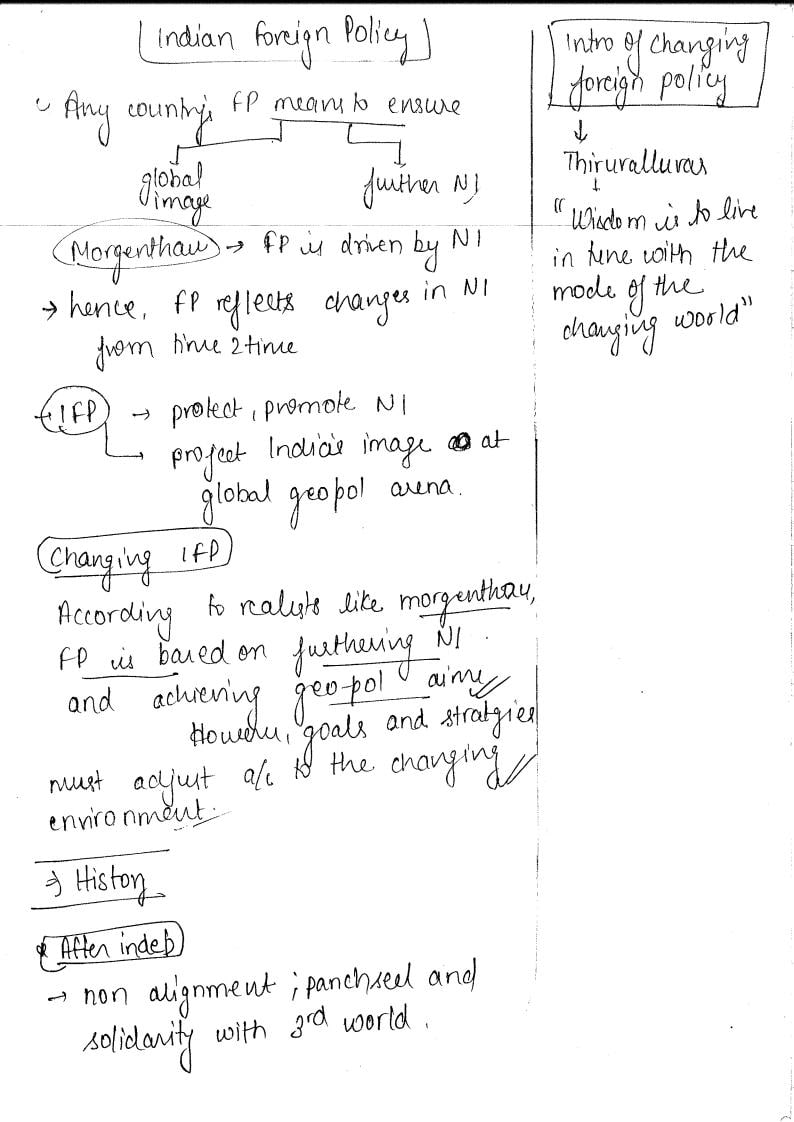 Indian Foreign Policy
Any country's FP means to ensure
global
image
further NI
Morgenthau → FP is driven by NI
→ hence, FP reflects changes in NI
from time 2 time
IFP → protect, promote NI
→ project India's image at
global geopol arena.
Changing IFP
According to realists like morgenthau,
FP is based on furthering NI
and achieving geo-pol aims
However, goals and stratgies
must adjust a/c to the changing
environment.
⇒ History
* After indep
→ non alignment ; panchseel and
solidarity with 3rd world.
Intro of changing
foreign policy
↓
Thiruralluvas
↓
"Wisdom is to live
in tune with the
mode of the
changing world"